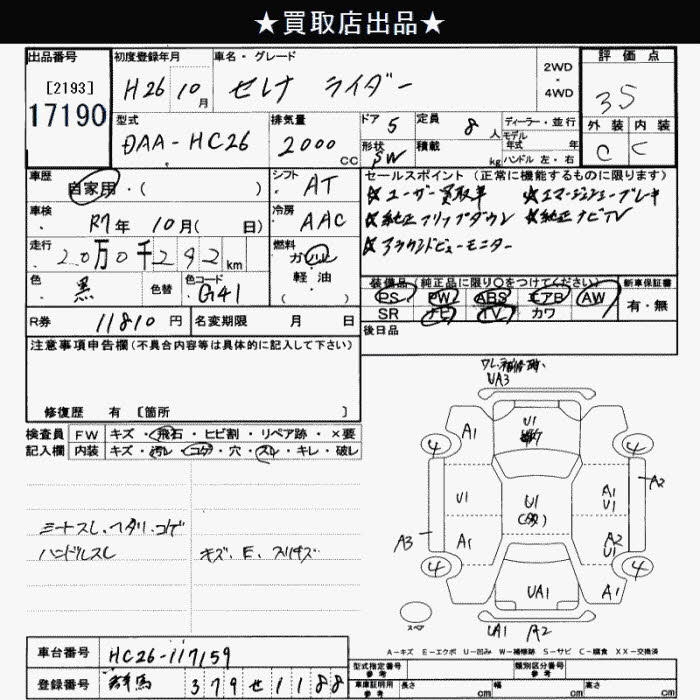 ★買取店出品★
出品番号 [2193] 17190
初度登録年月 H26 10月
車名・グレード セレナ ライダー
2WD・4WD
評価点 3.5
外装 C 内装 C
型式 DAA-HC26
排気量 2000 CC
ドア 5
定員 8 人
ディーラー・並行
モデル年式 年
形状 SW
積載 kg
ハンドル 左・右
車歴 自家用・( )
シフト AT
セールスポイント(正常に機能するものに限ります)
☆ユーザー買取車 ☆エマージェンシーブレーキ
☆純正フリップダウン ☆純正ナビTV
☆アラウンドビューモニター
車検 R7年 10月( 日)
冷房 AAC
走行 2.0万0千292km
燃料 ガソリン・軽油・( )
色 黒 色替 色コード G41
装備品(純正品に限り○をつけてください) 新車保証書
PS PW ABS エアB AW 有・無
SR ナビ TV カワ
R券 11810円 名変期限 月 日
後日品
注意事項申告欄(不具合内容等は具体的に記入して下さい)
修復歴 有 [箇所 ]
検査員記入欄 FW キズ・飛石・ヒビ割・リペア跡・×要
内装 キズ・汚レ・コゲ・穴・スレ・キレ・破レ
シートスレ、ヘタリ、コゲ
ハンドルスレ キズ、E、
UA3
U1
4 A1 4
U1 U1 A1 U1 A2
A3 A1 A2 U1
4 UA1 A1 4
スペア UA1 A2
A-キズ E-エクボ U-凹み W-補修跡 S-サビ C-腐食 XX-交換済
車台番号 HC26-117159
登録番号 群馬 379 せ 1188
型式指定番号 参考 類別区分番号 参考
車庫証明用 参考 長さ cm 幅 cm 高さ cm